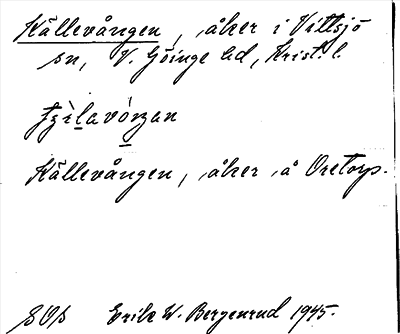 Källevången, åker i Vittsjö
sn, V. Göinge hd, Krist. l.
Källevången, åker å Oretorp.
Erik W. Bergenrud 1945.